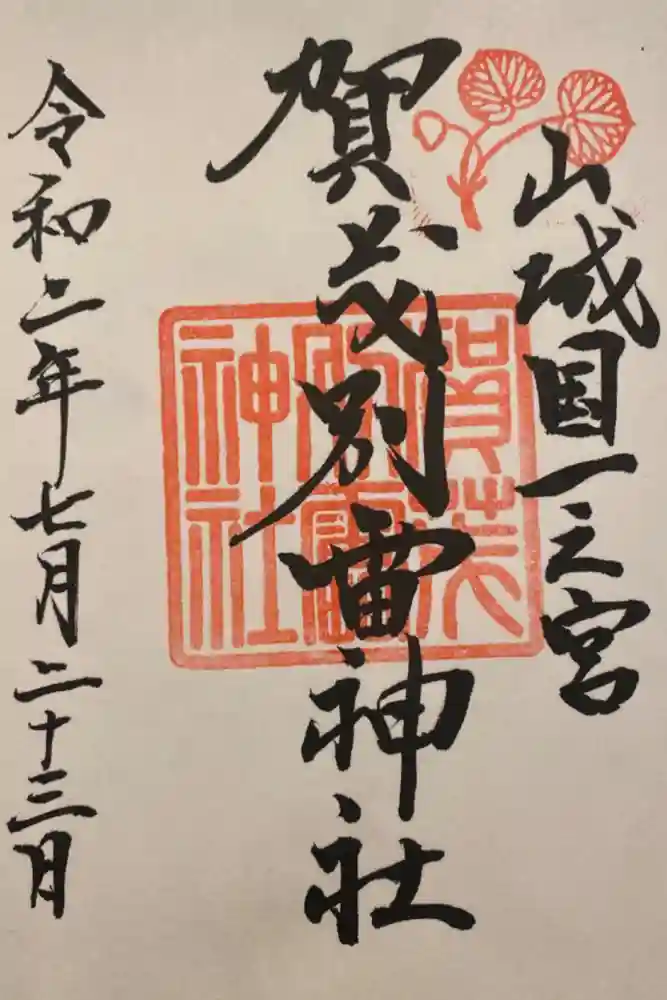 山城国一之宮
賀茂別雷神社
賀茂
別雷
神社
令和二年七月二十三日